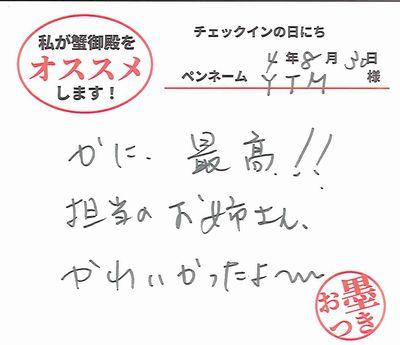 私が蟹御殿を
オススメ
します！
チェックインの日にち
4年8月30日
ペンネーム YTM 様
かに、最高!!
担当のお姉さん、
かわいかったよ〜
お墨つき